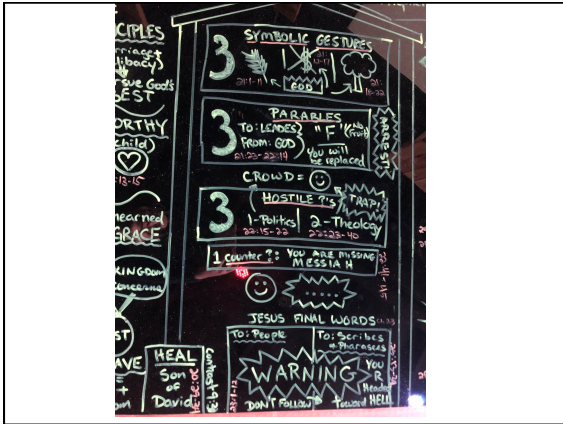 CIPLES
libacy
sue God's
BEST
ORTHY
child)
13-15
nearned
GRACE
KINGDOM
HEAL
Son
of
David
3
SYMBOLIC GESTURES
21:1-11
GOD
3
PARABLES
TO: LEADES
FROM: GOD
21:23-22:14
"F" (No
Fruit)
You will
be replaced
ARREST!
CROWD =
3
HOSTILE ?'s
TRAP!
1-Politics
22:15-22
2-Theology
22:23-40
1 counter ?: YOU ARE MISSING
MESSIAH
22:41-45
.....
JESUS FINAL WORDS
TO: People
To: Scribes
+ Pharasees
WARNING
DON'T FOLLOW
YOU
R
Headed
toward HELL
23:1-12